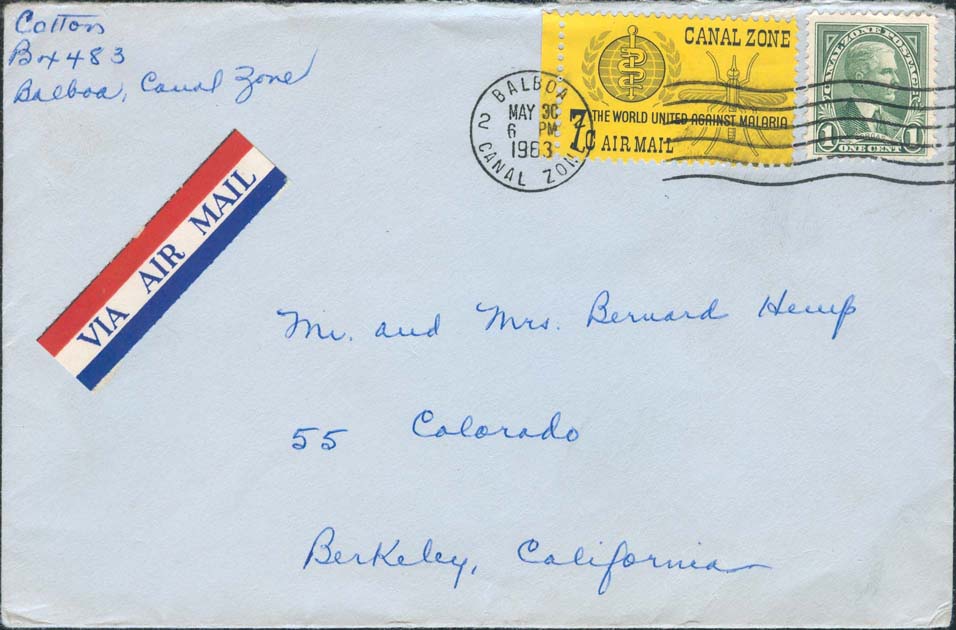 Cotton
Box 483
Balboa, Canal Zone
VIA AIR MAIL
BALBOA
MAY 30
6 PM
1963
2 CANAL ZONE 2
CANAL ZONE
THE WORLD UNITED AGAINST MALARIA
7c AIR MAIL
CANAL ZONE POSTAGE
1 1
ONE CENT
Mr. and Mrs. Bernard Hemp
55 Colorado
Berkeley, California